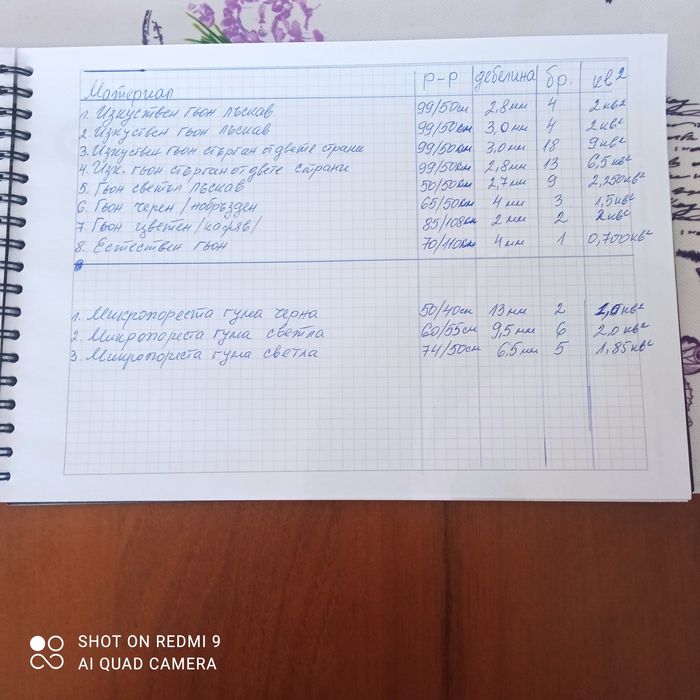 Материал р-р дебелина бр. кв²
1. Изкуствен гьон лъскав 99/50см 2,8мм 4 2кв²
2 Изкуствен гьон лъскав 99/50см 3,0мм 4 2кв²
3. Изкуствен гьон стърган от двете страни 99/50см 3,0мм 18 9кв²
4. Изк. гьон стърган от двете страни 99/50см 2,8мм 13 6,5кв²
5. Гьон светъл лъскав 50/50см 2,7мм 9 2,250кв²
6. Гьон черен /набръзден 65/50см 4мм 3 1,5кв²
7 Гьон цветен /кафяв/ 85/108см 2мм 2 2кв²
8. Естествен гьон 70/110см 4мм 1 0,700кв²
1. Микропореста гума черна 50/40см 13мм 2 1,0кв²
2. Микропореста гума светла 60/55см 9,5мм 6 2,0кв²
3. Микропореста гума светла 74/50см 6,5мм 5 1,85кв²
SHOT ON REDMI 9
AI QUAD CAMERA